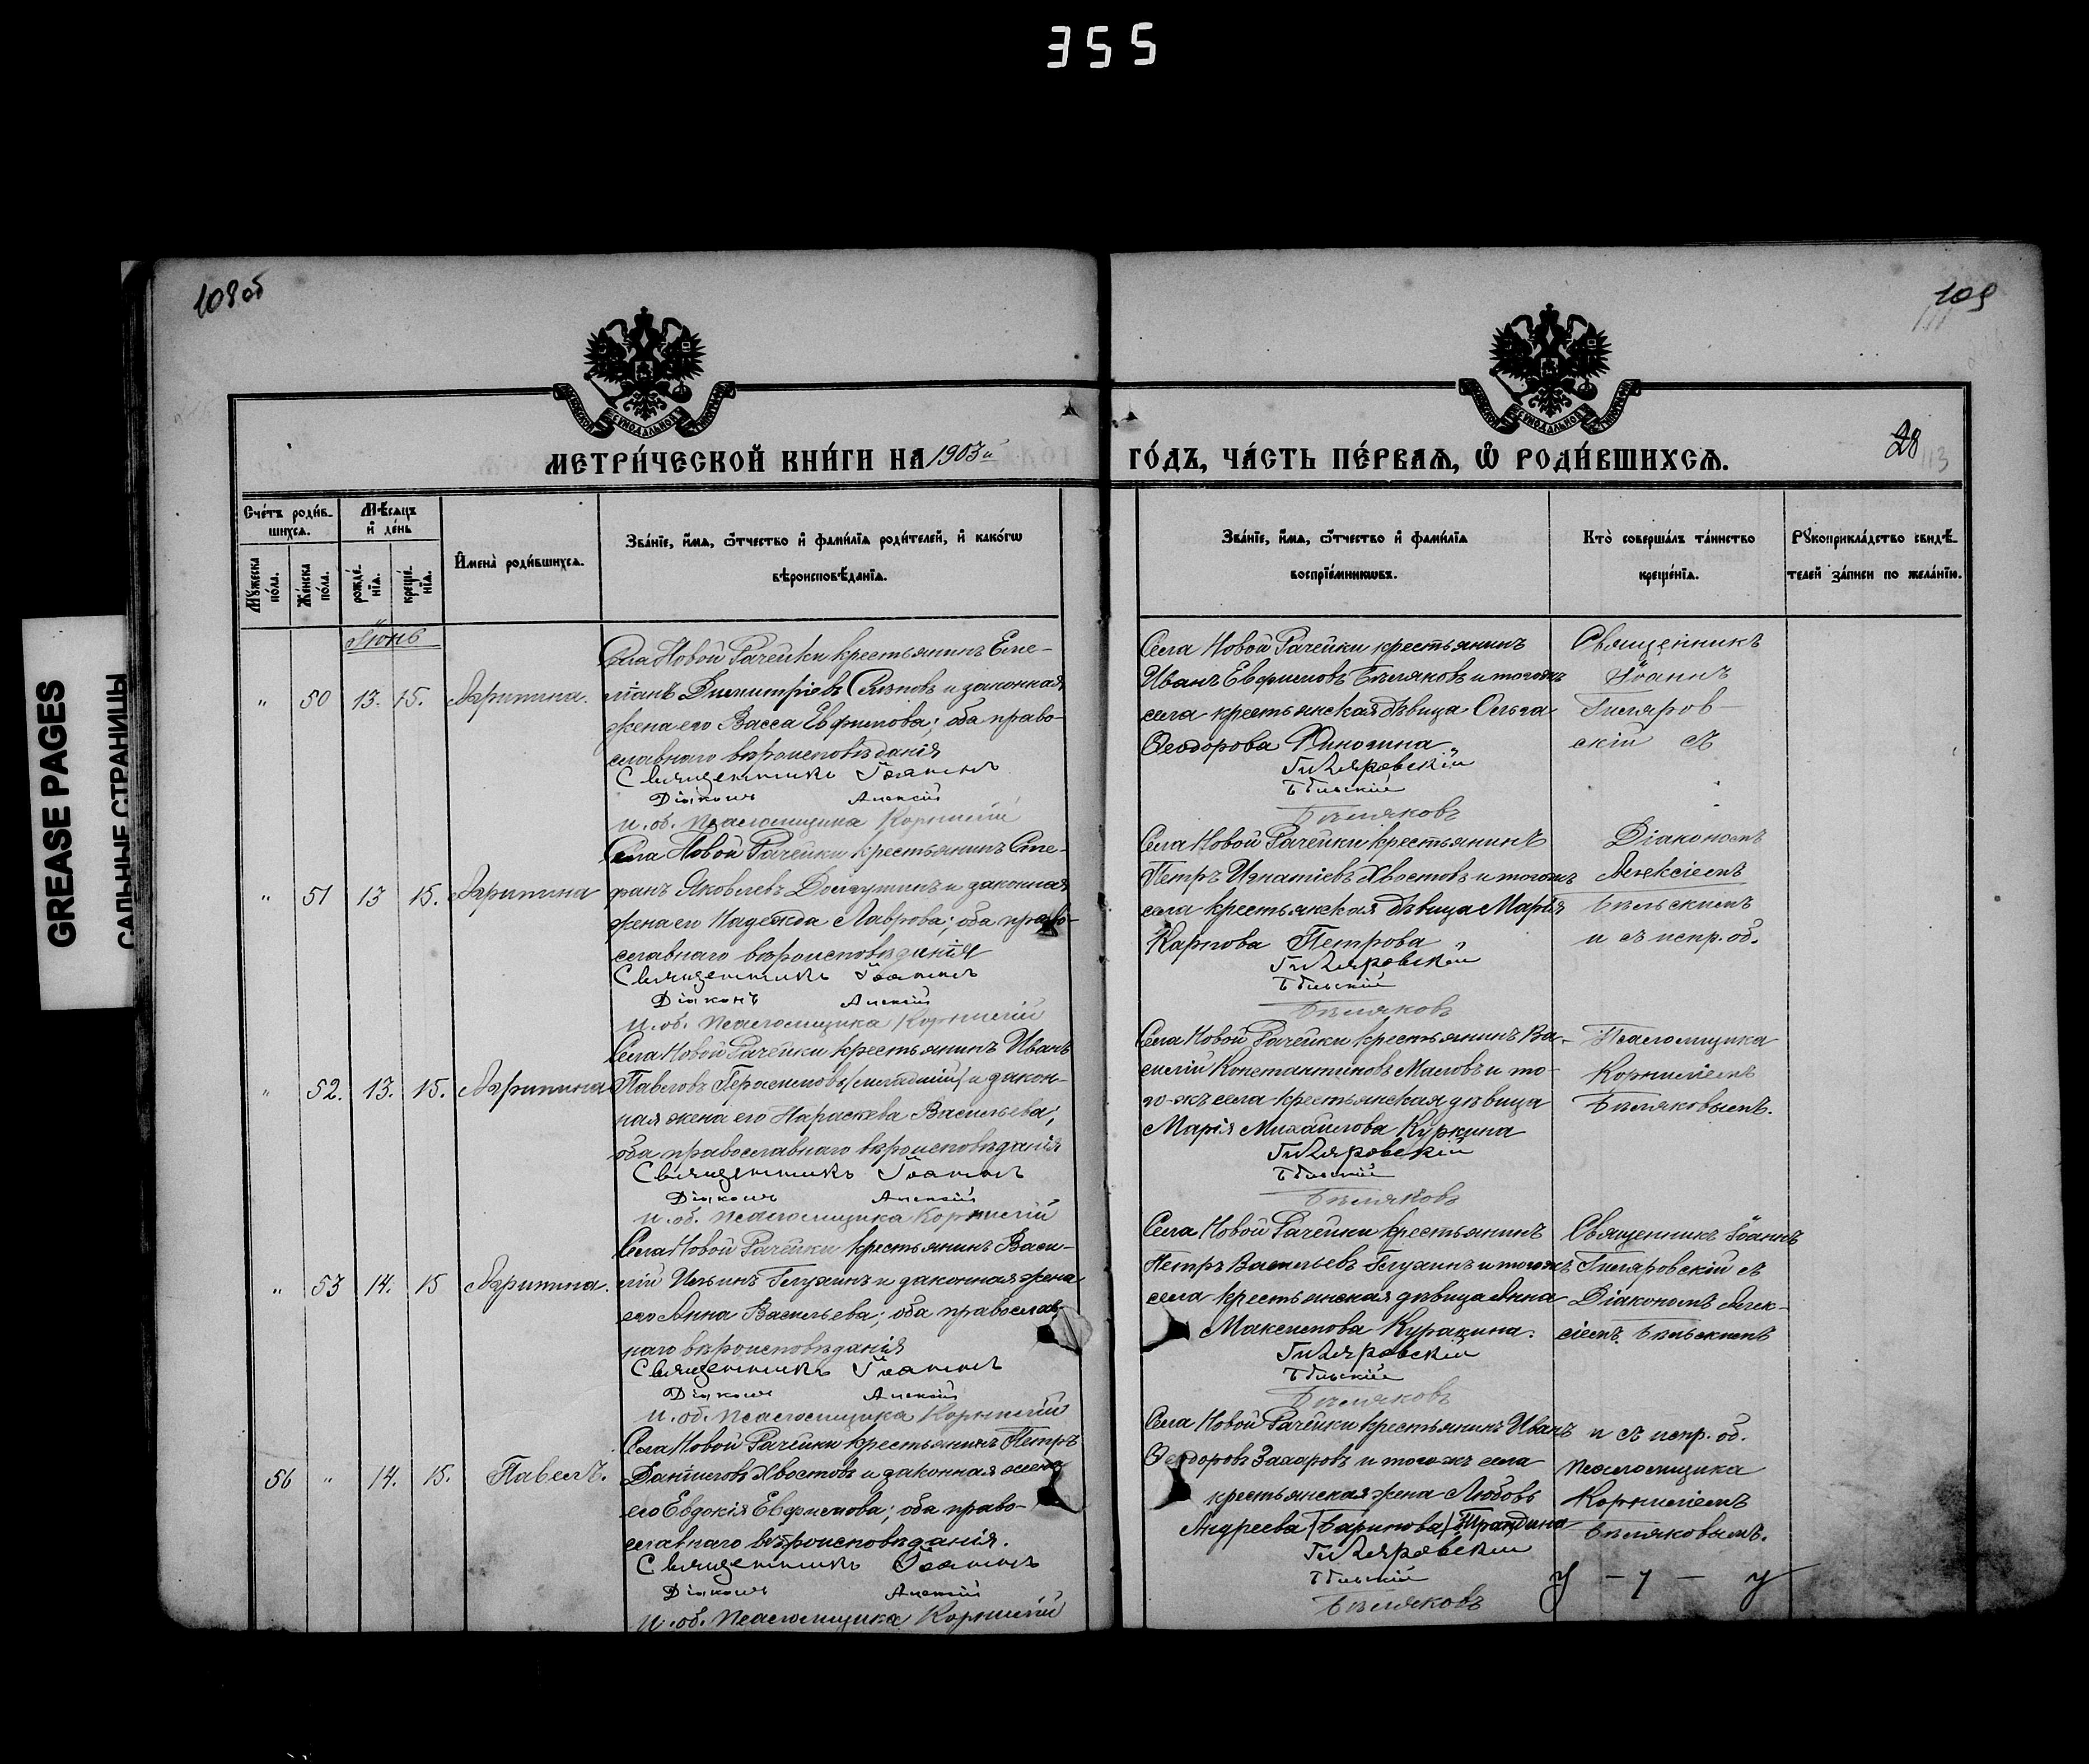 355
108 об
109
МЕТРИ́ЧЕСКОЙ КНИ́ГИ НА 1903 й
ГО́ДЪ, ЧА́СТЬ ПЕ́РВАѦ, Ѡ РОДИ́ВШИХСѦ.
28
113
Сче́тъ роди́в-
шихсѧ.
Мѣ́сѧцъ
и҆ де́нь
И҆мена̀ роди́вшихсѧ.
Зва́нїе, и҆́мѧ, ѻ҆́тчество и҆ фами́лїѧ роди́телей, и҆ како́гѡ
вѣроисповѣ́данїѧ.
Мꙋ́жеска по́ла.
Же́нска по́ла.
рожде́-нїѧ.
креще́-нїѧ.
Зва́нїе, и҆́мѧ, ѻ҆́тчество и҆ фами́лїѧ
воспрїе́мникѡвъ.
Кто̀ соверша́лъ та́инство
креще́нїѧ.
Рꙋкоприкла́дство свидѣ́-
телей за́писи по жела́нїю.
Іюнь
" 50 13. 15. Агрипина.
Села Новой Рачейки крестьянинъ Еме-
ліанъ Димитріевъ и законная
жена его Васса Евфимова; оба право-
славнаго вѣроисповѣданія
Священникъ Іоаннъ
Діаконъ Алексій
и.об. псаломщика Корнилій
Села Новой Рачейки крестьянинъ
Иванъ Евфимовъ Бѣляковъ и тогожъ
села крестьянская дѣвица Ольга
Ѳеодорова
Гиляровскій
Бѣльскій
Бѣляковъ
Священникъ
Іоаннъ
Гиляров-
скій съ
" 51 13 15. Агрипина
Села Новой Рачейки крестьянинъ Сте-
фанъ Яковлевъ Долгушинъ и законная
жена его Надежда Лаврова; оба право-
славнаго вѣроисповѣданія
Священникъ Іоаннъ
Діаконъ Алексій
и.об. псаломщика Корнилій
Села Новой Рачейки крестьянинъ
Петръ Игнатіевъ Хвостовъ и тогожъ
села крестьянская дѣвица Марія
Карпова Петрова
Гиляровскій
Бѣльскій
Бѣляковъ
Діакономъ
Алексіемъ
Бѣльскимъ
и съ испр. об.
" 52. 13. 15. Агрипина
Села Новой Рачейки крестьянинъ Иванъ
Павловъ Герасимовъ (младшій) и закон-
ная жена его Параскева Васильева;
оба православнаго вѣроисповѣданія
Священникъ Іоаннъ
Діаконъ Алексій
и.об. псаломщика Корнилій
Села Новой Рачейки крестьянинъ Ва-
силій Константиновъ Масловъ и то-
го-жъ села крестьянская дѣвица
Марія Михайлова Куркина
Гиляровскій
Бѣльскій
Бѣляковъ
Псаломщика
Корниліемъ
Бѣляковымъ.
" 53 14. 15 Агрипина.
Села Новой Рачейки крестьянинъ Васи-
лій Ильинъ Глухинъ и законная жена
его Анна Васильева; оба православ-
наго вѣроисповѣданія
Священникъ Іоаннъ
Діаконъ Алексій
и.об. псаломщика Корнилій
Села Новой Рачейки крестьянинъ
Петръ Васильевъ Глухинъ и тогожъ
села крестьянская дѣвица Анна
Максимова Куракина.
Гиляровскій
Бѣльскій
Бѣляковъ
Священникъ Іоаннъ
Гиляровскій съ
Діакономъ Алек-
сіемъ Бѣльскимъ
56 " 14. 15. Павелъ.
Села Новой Рачейки крестьянинъ Петръ
Даниловъ Хвостовъ и законная жена
его Евдокія Евфимова; оба право-
славнаго вѣроисповѣданія.
Священникъ Іоаннъ
Діаконъ Алексій
и.об. псаломщика Корнилій
Села Новой Рачейки крестьянинъ Иванъ
Ѳеодоровъ Захаровъ и того-жъ села
крестьянская жена Любовь
Андреева (Баринова)
Гиляровскій
Бѣльскій
Бѣляковъ
и съ испр. об.
псаломщика
Корниліемъ
Бѣляковымъ.
GREASE PAGES
САЛЬНЫЕ СТРАНИЦЫ